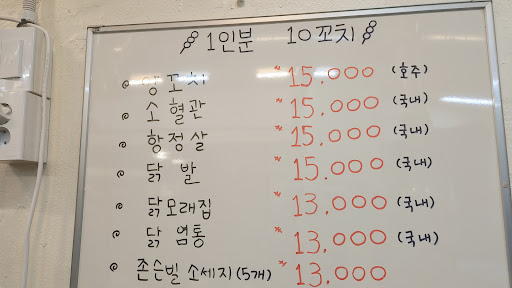 1인분 10꼬치
양꼬치 15.000 (호주)
소 혈관 15.000 (국내)
항정살 15.000 (국내)
닭 발 15.000 (국내)
닭모래집 13.000 (국내)
닭 염통 13.000 (국내)
존슨빌 소세지(5개) 13.000